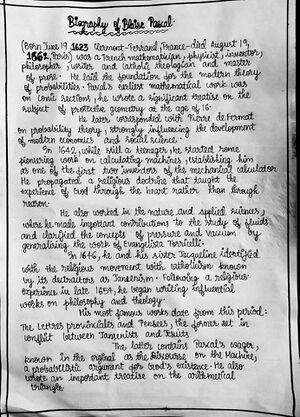 Biography of Blaise Pascal
(Born June 19 1623 Clermont-Ferrand, France-died August 19,
1662, Paris) was a French mathematician, physicist, inventor,
philosopher, writer and catholic theologian and master
of prose. He laid the foundation for the modern theory
of probabilities. Pascal's earliest mathematical work was
on conic sections; he wrote a significant treatise on the
subject of protective geometry at the age of 16.
He later corresponded with Pierre de Fermat
on probability theory, strongly influencing the development
of modern economics and social science.
In 1642, while still a teenager, he started some
pioneering work on calculating machines, establishing him
as one of the first two inventors of the mechanical calculator.
He propagated a religious doctrine that taught the
experience of God through the heart rather than through
reason.
He also worked in the nature and applied sciences,
where he made important contributions to the study of fluids
and clarified the concepts of pressure and vacuum by
generalising the work of Evangelista Torricelli.
In 1646, he and his sister Jacqueline identified
with the religious movement with catholicism known
by its detractors as Jansenism. Following a religious
experience in late 1654, he began writing influential
works on philosophy and theology.
His most famous works date from this period:
The Lettres provinciales and Pensees, the former set in
conflict between Jansenists and
The latter contains Pascal's wager,
known in the orginal as the Discourse on the Machine,
a probabilistic argument for God's existence. He also
wrote an important treatise on the arithmetical
triangle.